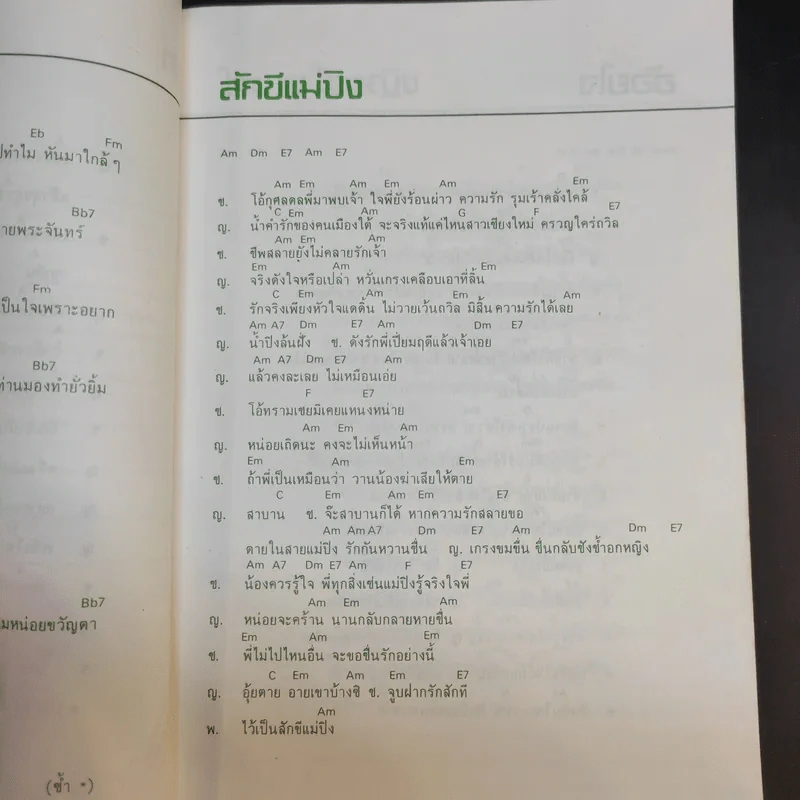 Eb
Fm
ทำไม หันมาใกล้ ๆ
Bb7
ายพระจันทร์
Fm
เป็นใจเพราะอยาก
Bb7
ท่านมองทำยั่วยิ้ม
Bb7
มหน่อยขวัญตา
(ซ้ำ *)
สักขีแม่ปิง
Am Dm E7 Am E7
Am Em Am Em Am Em
ช. โอ้กุศลดลพี่มาพบเจ้า ใจพี่ยังร้อนผ่าว ความรัก รุมเร้าคลั่งไคล้
C Em Am G F E7
ญ. น้ำคำรักของคนเมืองใต้ จะจริงแท้แค่ไหนสาวเชียงใหม่ ครวญใคร่ถวิล
Am Em Am
ช. ชีพสลายยังไม่คลายรักเจ้า
Em Am Em
ญ. จริงดังใจหรือเปล่า หวั่นเกรงเคลือบเอาที่ลิ้น
C Em Am Em Am
ช. รักจริงเพียงหัวใจแดดิ้น ไม่วายเว้นถวิล มิสิ้นความรักได้เลย
Am A7 Dm E7 Am Dm E7
ญ. น้ำปิงล้นฝั่ง ช. ดังรักพี่เปี่ยมฤดีแล้วเจ้าเอย
Am A7 Dm E7 Am
ญ. แล้วคงละเลย ไม่เหมือนเอ่ย
F E7
ช. โอ้ทรามเชยมิเคยแหนงหน่าย
Am Em Am
ญ. หน่อยเถิดนะ คงจะไม่เห็นหน้า
Em Am Em
ช. ถ้าพี่เป็นเหมือนว่า วานน้องฆ่าเสียให้ตาย
C Em Am Em E7
ญ. สาบาน ช. จ๊ะสาบานก็ได้ หากความรักสลายขอ
Am Am A7 Dm E7 Am Dm E7
ตายในสายแม่ปิง รักกันหวานชื่น ญ. เกรงขมขื่น ขื่นกลับชังช้ำอกหญิง
Am A7 Dm E7 Am F E7
ช. น้องควรรู้ใจ พี่ทุกสิ่งเช่นแม่ปิงรู้จริงใจพี่
Am Em Am
ญ. หน่อยจะคร้าน นานกลับกลายหายชื่น
Em Am Em
ช. พี่ไม่ไปไหนอื่น จะขอชื่นรักอย่างนี้
C Em Am Em E7
ญ. อุ้ยตาย อายเขาบ้างซิ ช. จูบฝากรักสักที
Am
พ. ไว้เป็นสักขีแม่ปิง